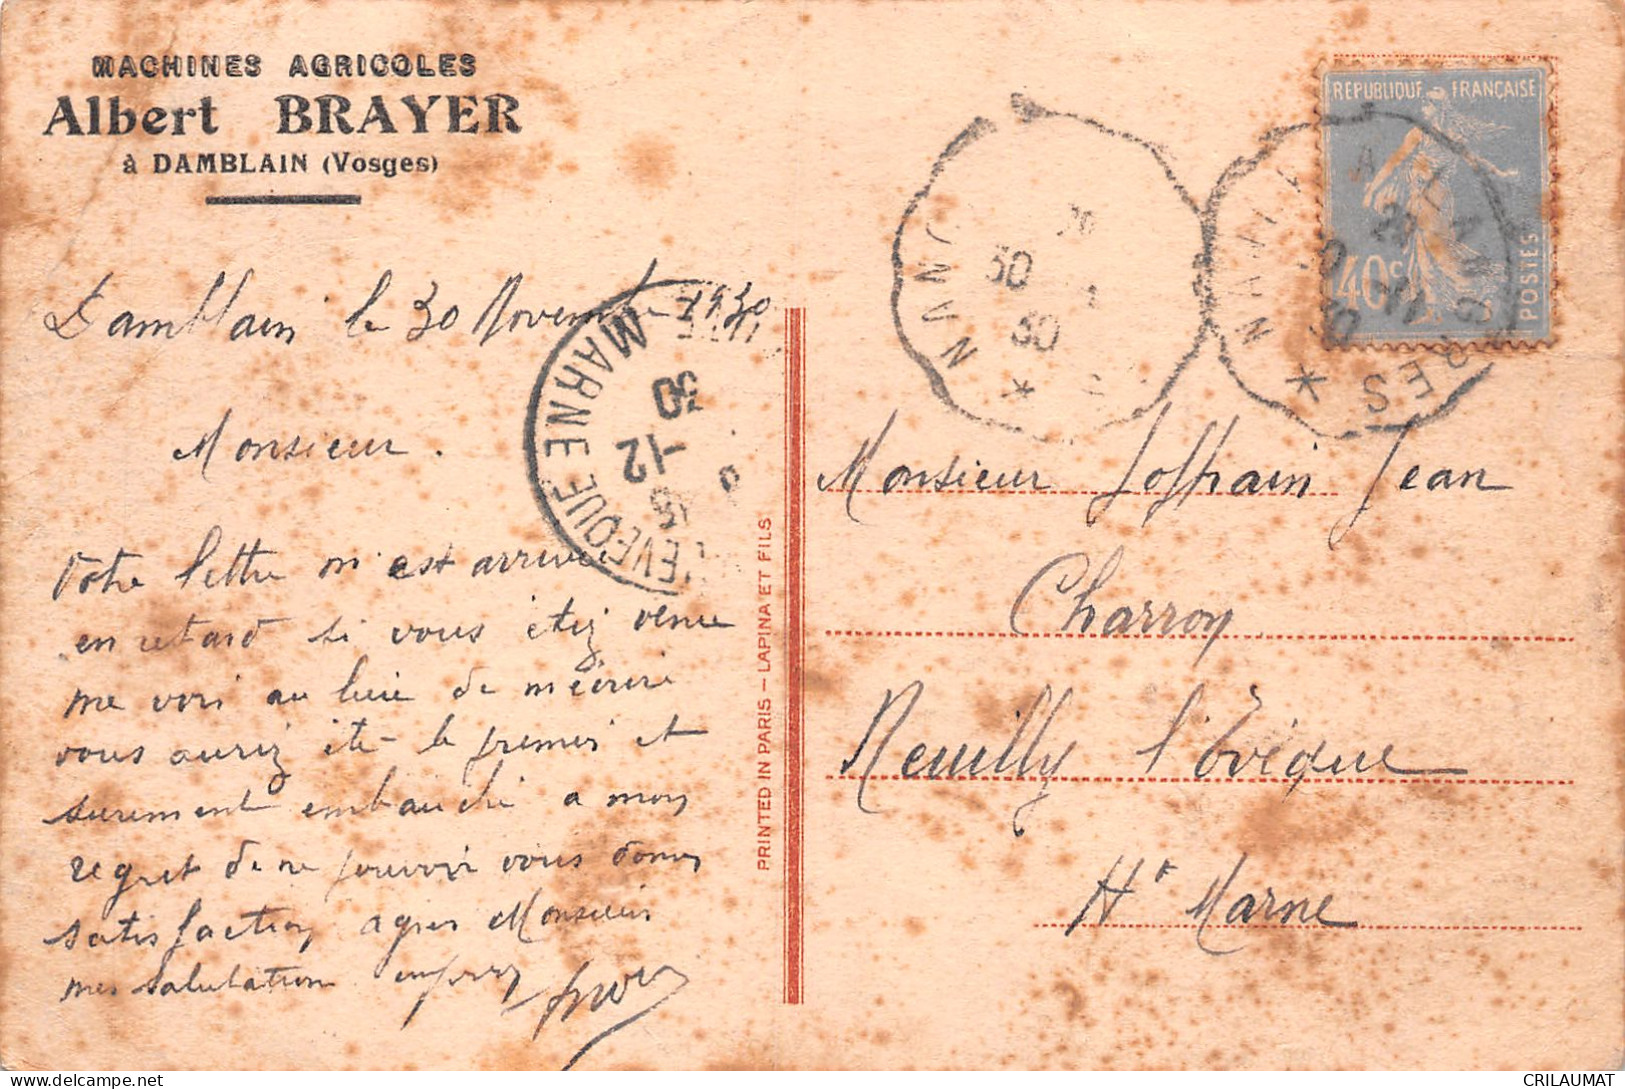 MACHINES AGRICOLES
Albert BRAYER
à DAMBLAIN (Vosges)
Damblain le 30 Novembre 1930
Monsieur.
Votre lettre m'est arrivée
en retard si vous étiez venu
me voir au lieu de m'écrire
vous auriez été le premier et
surement embauché a mon
regret de ne pouvoir vous donner
satisfaction agréer Monsieur
mes salutation
MARNE
30
-12
EVEQUE
PRINTED IN PARIS – LAPINA ET FILS
REPUBLIQUE FRANÇAISE
40c
POSTES
NANC
30
30
*
NANC A LANGRES
*
Monsieur Jean
Charron
Neuilly l'Evêque
Hte Marne
CRILAUMAT